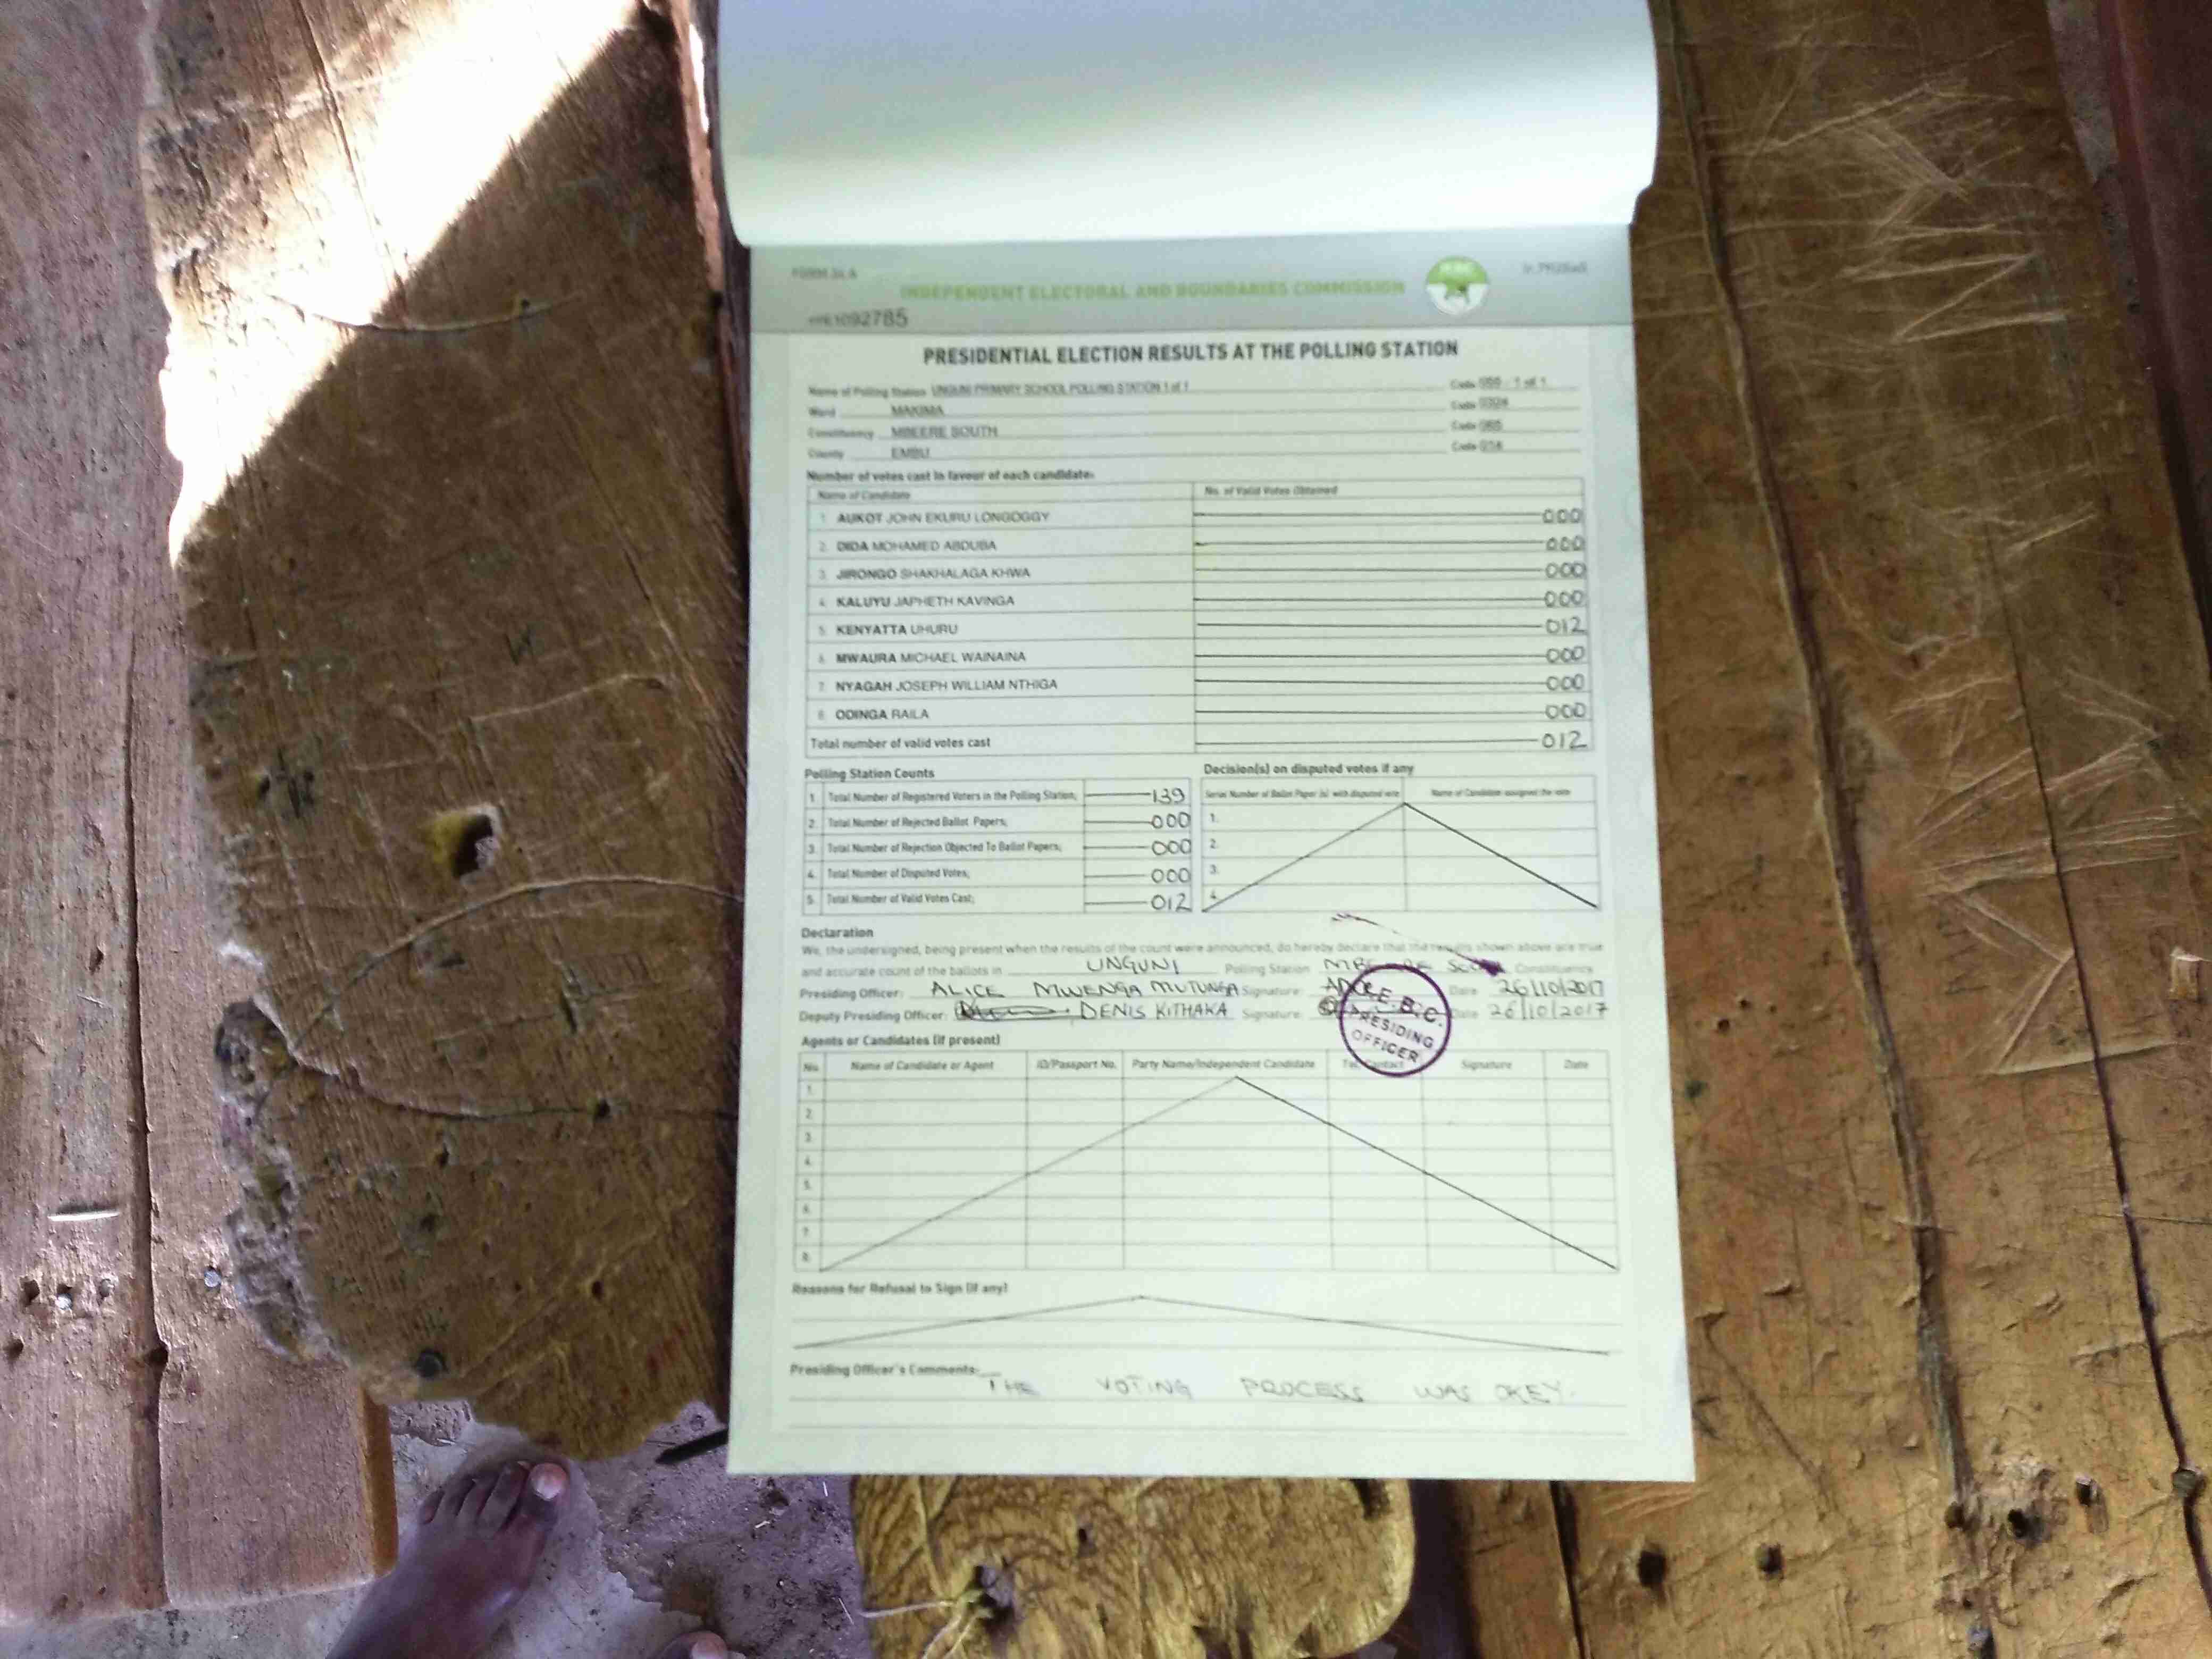 FORM 34 A
INDEPENDENT ELECTORAL AND BOUNDARIES COMMISSION
092785
PRESIDENTIAL ELECTION RESULTS AT THE POLLING STATION
Name of Polling Station UNGUNI PRIMARY SCHOOL POLLING STATION 1 of 1 Code 1 of 1
Ward MAKIMA Code
Constituency MBEERE SOUTH Code
County EMBU Code 014
Number of votes cast in favour of each candidate:
Name of Candidate No. of Valid Votes Obtained
1. AUKOT JOHN EKURU LONGOGGY 000
2. DIDA MOHAMED ABDUBA 000
3. JIRONGO SHAKHALAGA KHWA 000
4. KALUYU JAPHETH KAVINGA 000
5. KENYATTA UHURU 012
6. MWAURA MICHAEL WAINAINA 000
7. NYAGAH JOSEPH WILLIAM NTHIGA 000
8. ODINGA RAILA 000
Total number of valid votes cast 012
Polling Station Counts
1. Total Number of Registered Voters in the Polling Station; 139
2. Total Number of Rejected Ballot Papers; 000
3. Total Number of Rejection Objected To Ballot Papers; 000
4. Total Number of Disputed Votes; 000
5. Total Number of Valid Votes Cast; 012
Decision(s) on disputed votes if any
Serial Number of Ballot Paper (s) with disputed vote Name of Candidate assigned the vote
1.
2.
3.
4.
Declaration
We, the undersigned, being present when the results of the count were announced, do hereby declare that the results shown above are true
and accurate count of the ballots in UNGUNI Polling Station Constituency
Presiding Officer: ALICE MWENGA MUTUNGA Signature: Date 26/10/2017
Deputy Presiding Officer: DENIS KITHAKA Signature: Date 26/10/2017
I.E.B.C.
PRESIDING
OFFICER
Agents or Candidates (if present)
No. Name of Candidate or Agent ID/Passport No. Party Name/Independent Candidate Tel. Contact Signature Date
1.
2.
3.
4.
5.
6.
7.
8.
Reasons for Refusal to Sign (if any)
Presiding Officer's Comments:
THE VOTING PROCESS WAS OKEY.